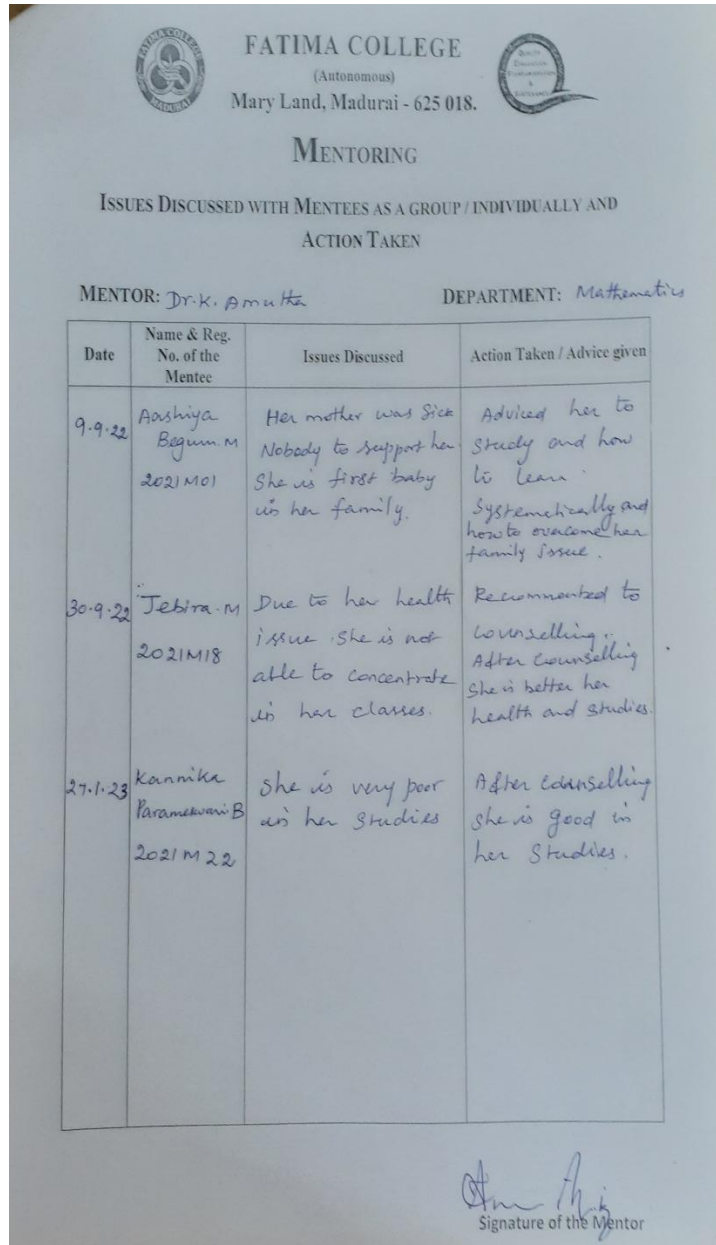 FATIMA COLLEGE
MADURAI
FATIMA COLLEGE
(Autonomous)
Mary Land, Madurai - 625 018.
MENTORING
ISSUES DISCUSSED WITH MENTEES AS A GROUP / INDIVIDUALLY AND
ACTION TAKEN
MENTOR: Dr. K. Amutha DEPARTMENT: Mathematics
Date
Name & Reg.
No. of the
Mentee
Issues Discussed
Action Taken / Advice given
9.9.22
Aashiya
Begum. M
2021M01
Her mother was Sick
Nobody to support her
She is first baby
in her family.
Adviced her to
study and how
to learn
systematically and
how to overcome her
family issue.
30.9.22
Jebira. M
2021M18
Due to her health
issue. She is not
able to concentrate
in her classes.
Recommonted to
counselling..
After Counselling
She is better her
health and studies.
27.1.23
Kannika
Parameswari B
2021M22
She is very poor
in her studies
After counselling
she is good in
her Studies.
Signature of the Mentor